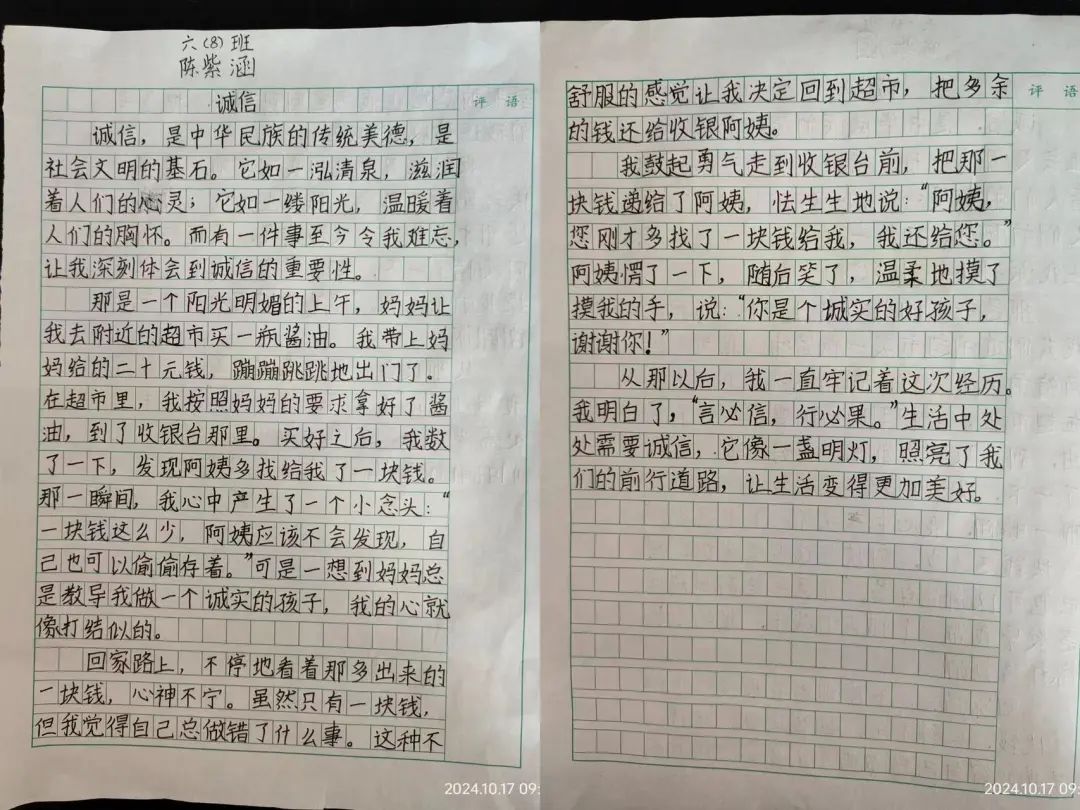 六(8)班
陈紫涵
诚信
评语
诚信，是中华民族的传统美德，是
社会文明的基石。它如一泓清泉，滋润
着人们的心灵；它如一缕阳光，温暖着
人们的胸怀。而有一件事至今令我难忘，
让我深刻体会到诚信的重要性。
那是一个阳光明媚的上午，妈妈让
我去附近的超市买一瓶酱油。我带上妈
妈给的二十元钱，蹦蹦跳跳地出门了。
在超市里，我按照妈妈的要求拿好了酱
油，到了收银台那里。买好之后，我数
了一下，发现阿姨多找给我了一块钱。
那一瞬间，我心中产生了一个小念头：“
一块钱这么少，阿姨应该不会发现，自
己也可以偷偷存着。”可是一想到妈妈总
是教导我做一个诚实的孩子，我的心就
像打结似的。
回家路上，不停地看着那多出来的
一块钱，心神不宁。虽然只有一块钱，
但我觉得自己总做错了什么事。这种不
2024.10.17 09:
评语
舒服的感觉让我决定回到超市，把多余
的钱还给收银阿姨。
我鼓起勇气走到收银台前，把那一
块钱递给了阿姨，怯生生地说：“阿姨，
您刚才多找了一块钱给我，我还给您。”
阿姨愣了一下，随后笑了，温柔地摸了
摸我的手，说：“你是个诚实的好孩子，
谢谢你！”
从那以后，我一直牢记着这次经历。
我明白了，“言必信，行必果。”生活中处
处需要诚信，它像一盏明灯，照亮了我
们的前行道路，让生活变得更加美好。
2024.10.17 09: